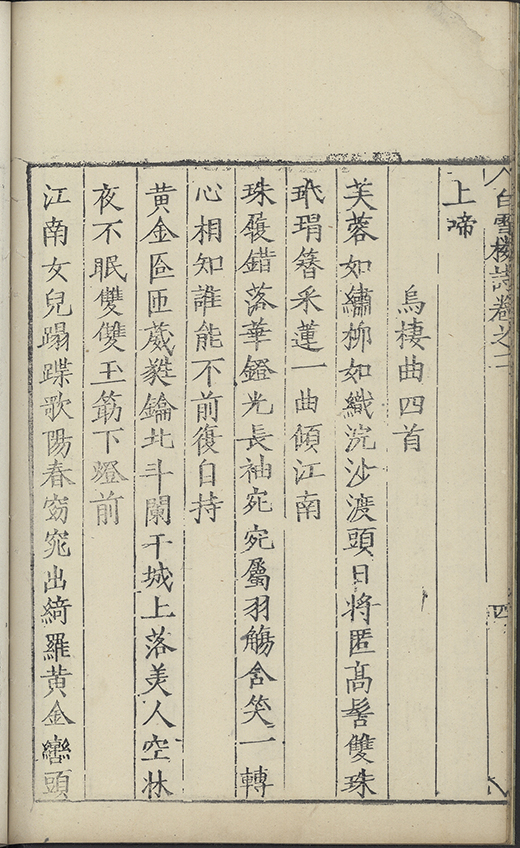 白雪樓詩卷之二 四
上啼
烏棲曲四首
芙蓉如繡柳如織浣沙渡頭日將匿高髻雙珠
玳瑁簪采蓮一曲傾江南
珠履錯落華鐙光長袖宛宛屬羽觴含笑一轉
心相知誰能不前復自持
黃金匼匝葳蕤鑰北斗闌干城上落美人空牀
夜不眠雙雙玉筯下燈前
江南女兒蹋蹀歌陽春窈窕出綺羅黃金巒頭